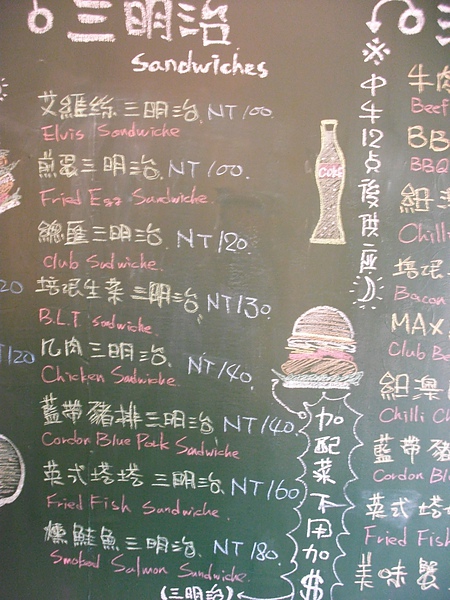 三明治
Sandwiches
艾維絲三明治 NT100.
Elvis Sandwiche
煎蛋三明治 NT100.
Fried Egg Sandwiche.
總匯三明治 NT120.
Club Sadwiche.
培根生菜三明治 NT130.
B.L.T. sadwiche.
肉三明治 NT140.
Chicken Sadwiche.
藍帶豬排三明治 NT140.
Cordon Blue Pork Sandwiche
英式塔塔三明治 NT160
Fried Fish Sandwiche.
燻鮭魚三明治 NT180.
Smoked Salmon Sandwiche.
(三明治)
20
T120
Coke
※中午12点後供应
加配菜不用加$
牛肉
Beef
BB
BBQ
紐澳
Chilli
培根
Bacon
MAX
Club Be
紐澳
Chilli Ch
藍帶豬
Cordon Bl
英式塔塔
Fried Fish
美味蟹